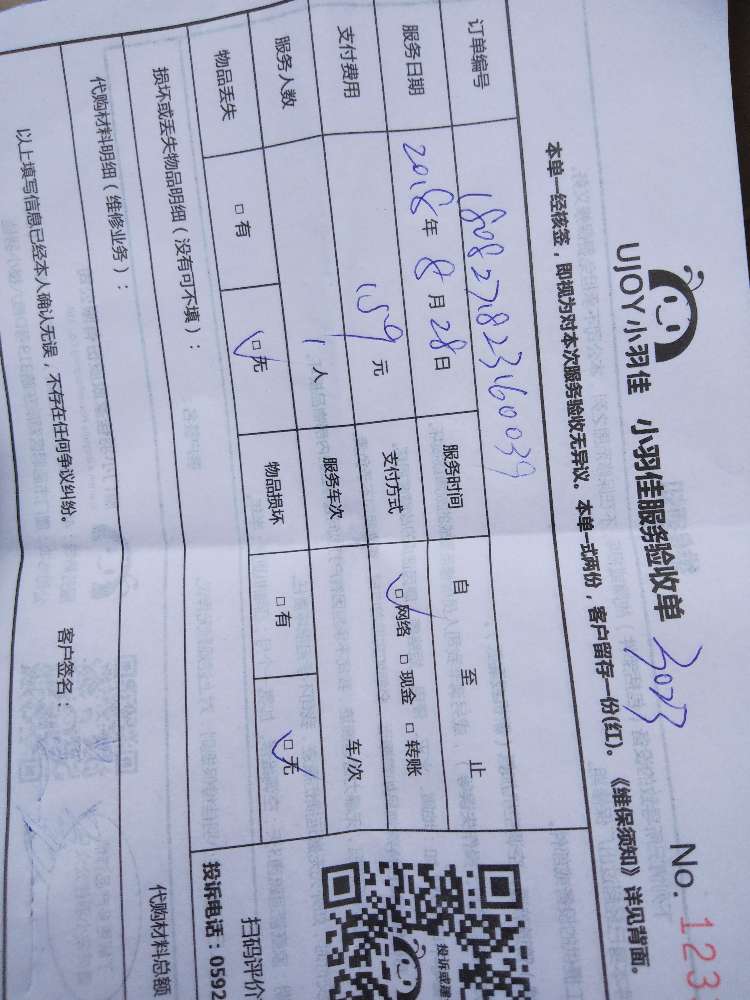 UJOY小羽佳 小羽佳服务验收单 3023 No. 123
本单一经核签，即视为对本次服务验收无异议。本单一式两份，客户留存一份(红)。《维保须知》详见背面。
订单编号 180827823160039
服务日期 2018年8月28日 服务时间 自 至 止
支付费用 159元 支付方式 ☑网络 □现金 □转账
服务人数 1人 服务车次 车/次
物品丢失 □有 ☑无 物品损坏 □有 ☑无
损坏或丢失物品明细（没有可不填）：
代购材料明细（维修业务）：
代购材料总额
以上填写信息已经本人确认无误，不存在任何争议纠纷。 客户签名：
投诉或建
扫码评价
投诉电话：0592